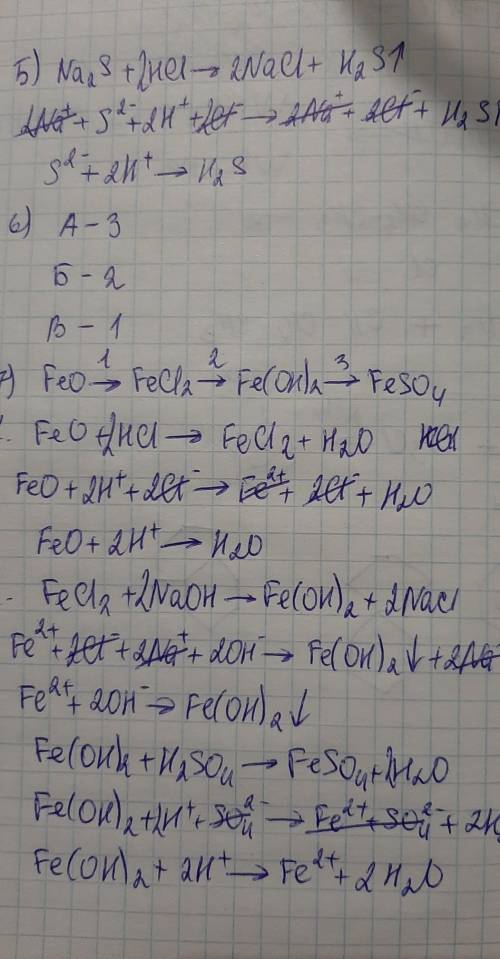 Б) Na₂S + 2HCl → 2NaCl + H₂S↑
2Na⁺ + S²⁻ + 2H⁺ + 2Cl⁻ → 2Na⁺ + 2Cl⁻ + H₂S↑
S²⁻ + 2H⁺ → H₂S
6) А – 3
Б – 2
В – 1
7) FeO →¹ FeCl₂ →² Fe(OH)₂ →³ FeSO₄
FeO + 2HCl → FeCl₂ + H₂O
FeO + 2H⁺ + 2Cl⁻ → Fe²⁺ + 2Cl⁻ + H₂O
FeO + 2H⁺ → H₂O
FeCl₂ + 2NaOH → Fe(OH)₂ + 2NaCl
Fe²⁺ + 2Cl⁻ + 2Na⁺ + 2OH⁻ → Fe(OH)₂↓ + 2Na
Fe²⁺ + 2OH⁻ → Fe(OH)₂↓
Fe(OH)₂ + H₂SO₄ → FeSO₄ + 2H₂O
Fe(OH)₂ + 2H⁺ + SO₄²⁻ → Fe²⁺ + SO₄²⁻ + 2H₂
Fe(OH)₂ + 2H⁺ → Fe²⁺ + 2H₂O